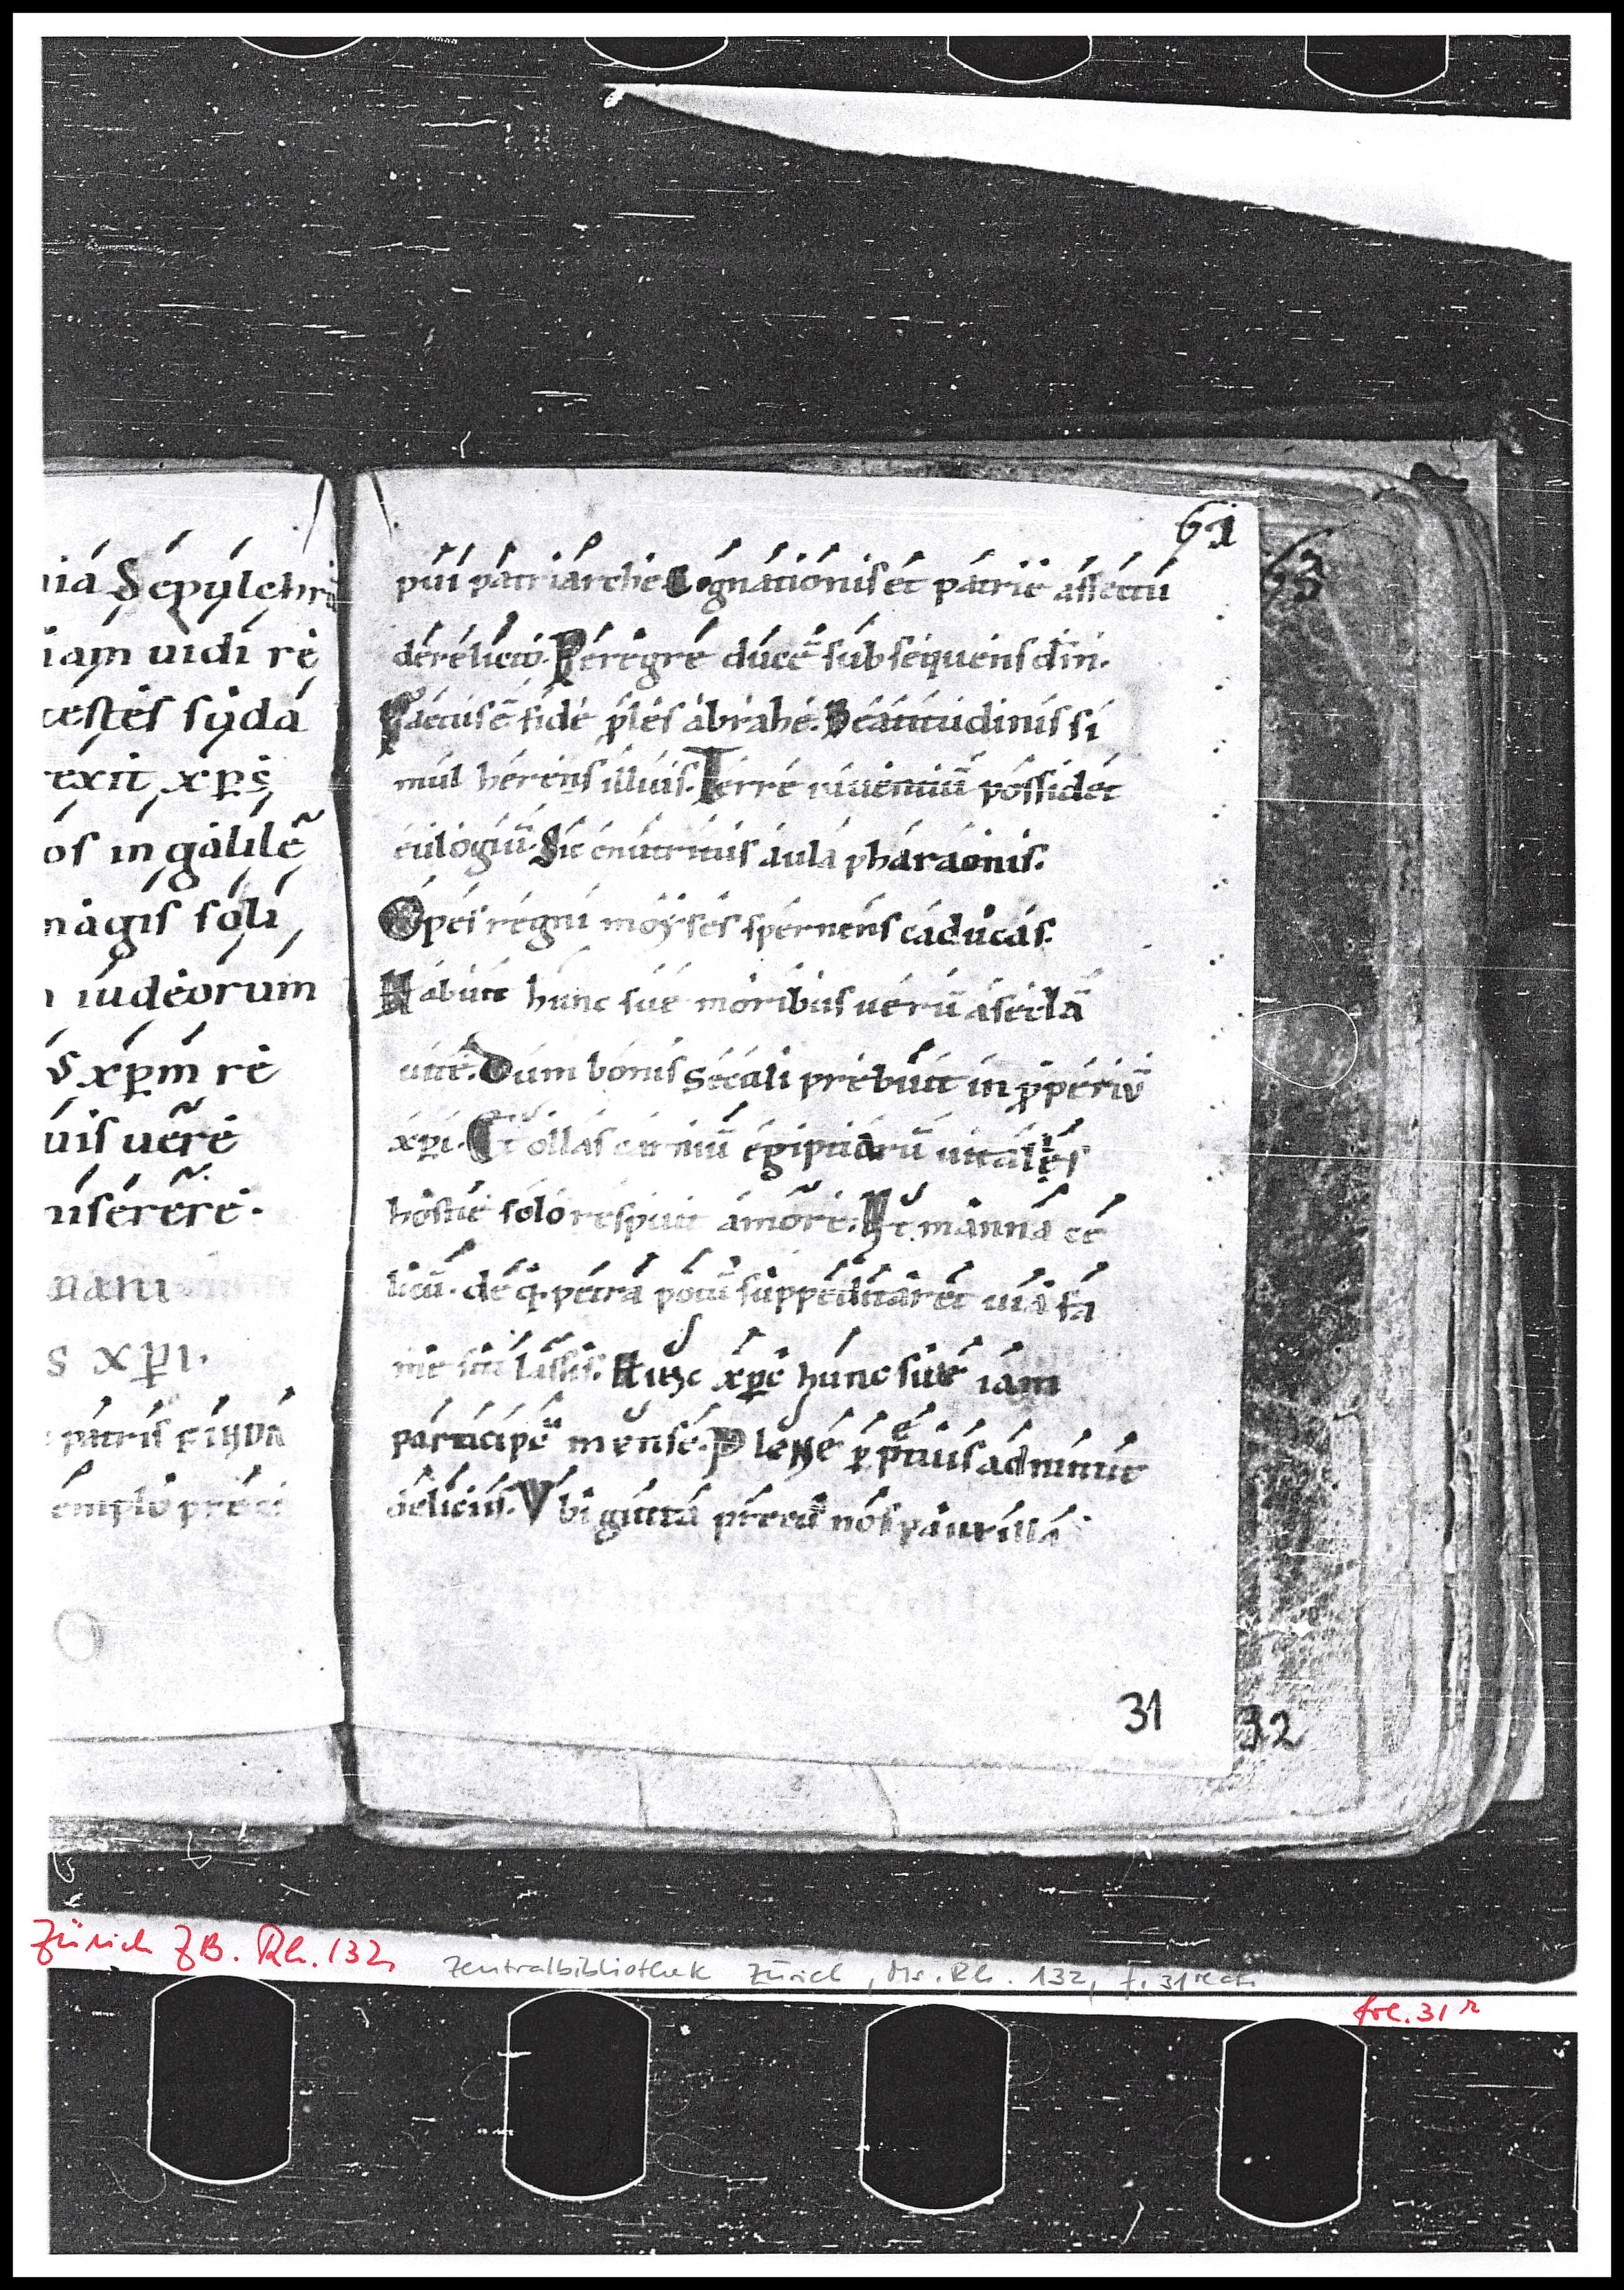 nia Sepulchrū
iam uidi re
testes syda
rexit xp̄s
os in galilē
magis soli
iudeorum
s xp̄m re
uis uere
miserere.
s xp̄i.
patris
emplo
61
63
pui patriarche Cognationis et patrie affectu
derelicto. Peregre ducē subsequens dn̄i.
Factus ē fide p̄les abrahe. Beatitudinis si
mul herens illius. Terre uiuentiū possidet
eulogiū. Sic enutritus aula pharaonis.
Opes regni moyses spernens caducas.
Habuit hunc sue moribus uerū aseclā
uite. Dum bonis secali prebuit in p̄periū
xp̄i. Et ollas carniū egiptiarū uitales
hostie solo respuit amore. Ut manna ce
licū. de q. petra potū suppeditaret uia fa
me lassis. Nunc xp̄e hunc sue iam
participē mense. Plene
deliciis. Vbi gutta
31
32
Zürich ZB. Rh. 132
Zentralbibliothek Zürich, Ms. Rh. 132, f. 31 recto
fol. 31 r